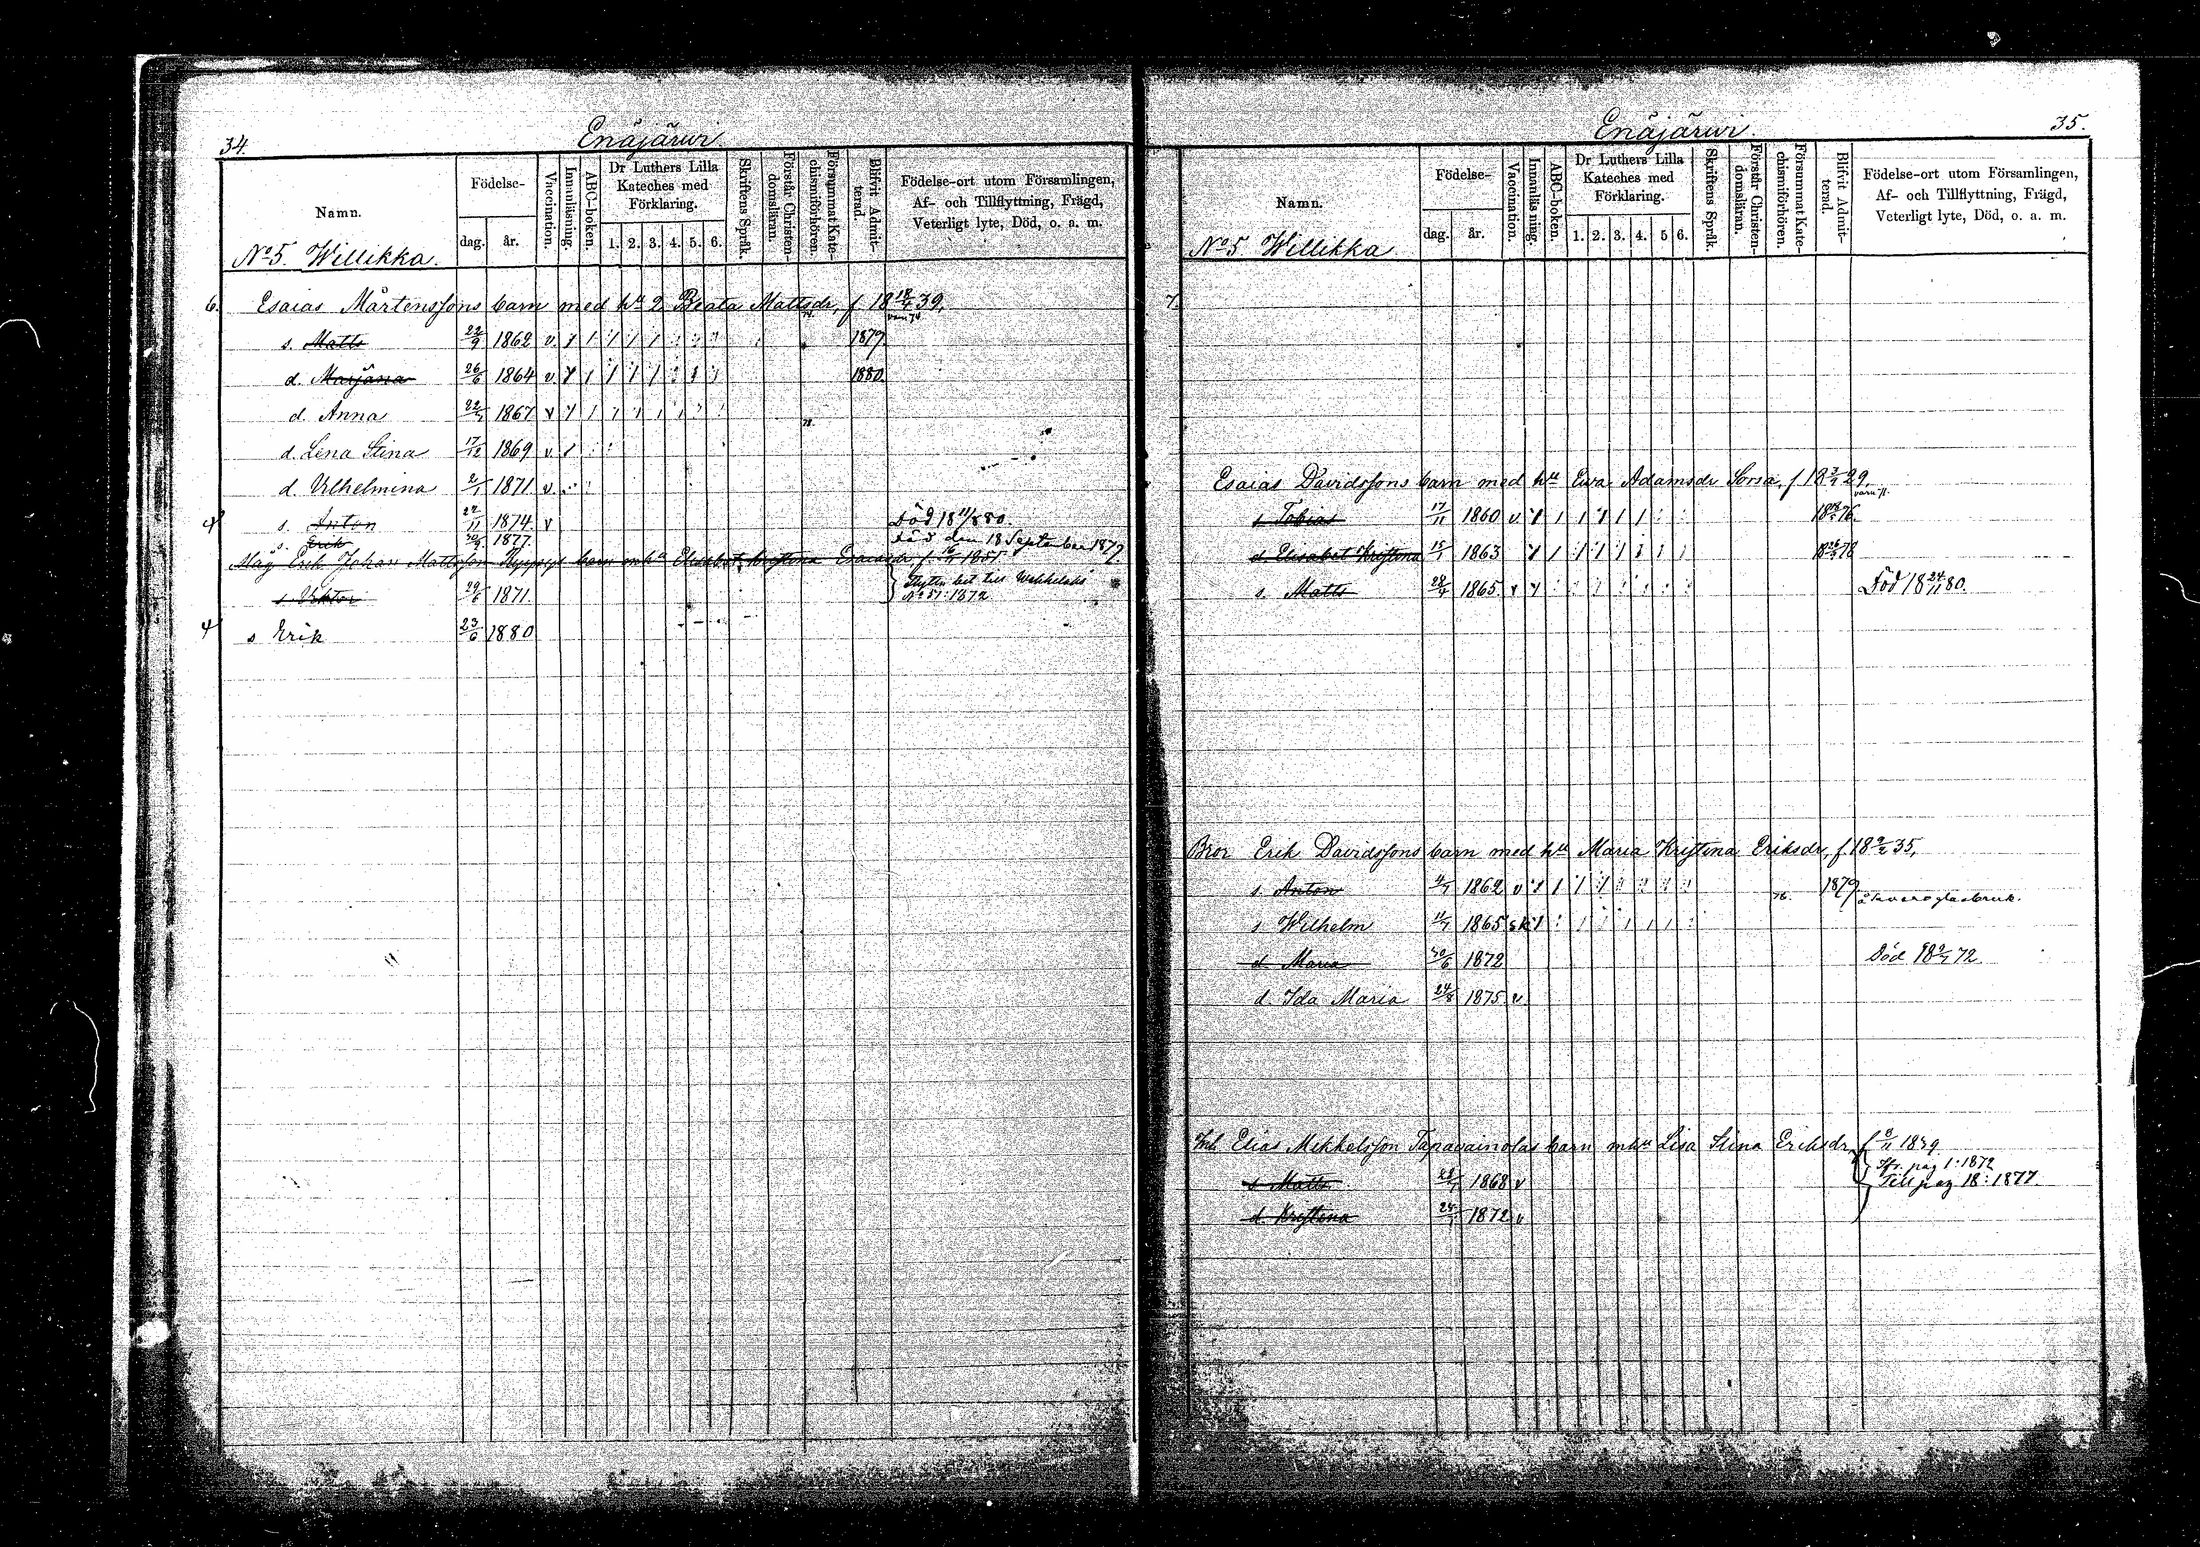 34.
Enäjärwi.
Namn.
Födelse-
dag.
år.
Vaccination.
Innanläsning.
ABC-boken.
Dr Luthers Lilla
Kateches med
Förklaring.
1. 2. 3. 4. 5. 6.
Skriftens Språk.
Förstår Christen-
domsläran.
Försummat Kate-
chismiförhören.
Blifvit Admit-
terad.
Födelse-ort utom Församlingen,
Af- och Tillflyttning, Frägd,
Veterligt lyte, Död, o. a. m.
No 5. Willikka.
6. Esaias Mårtenssons barn med hu 2 Beata Mattsdr, f. 18 39,
s. Matts 22/9 1862 v. 1879.
d. Marjana 26/6 1864 v 1880.
d. Anna 1867 v
78.
d. Lena Stina 17/12 1869 v.
d. Vilhelmina 2/1 1871 v.
s. Anton 1874 v Död 18 11/8 80.
s. Erik 1877. död den 18 September 1877.
Måg Erik Johan Mattsson barn m hu Elisabet Kristina Esaiasdr f. 1851.
s. Viktor 29/6 1871.
No 51: 1872
4 s Erik 23/6 1880
35.
Enäjärwi.
Namn.
Födelse-
dag.
år.
Vaccination.
Innanläsning.
ABC-boken.
Dr Luthers Lilla
Kateches med
Förklaring.
1. 2. 3. 4. 5 6.
Skriftens Språk.
Förstår Christen-
domsläran.
Försummat Kate-
chismiförhören.
Blifvit Admit-
terad.
Födelse-ort utom Församlingen,
Af- och Tillflyttning, Frägd,
Veterligt lyte, Död, o. a. m.
No 5 Willikka
7.
Esaias Davidssons barn med hu Ewa Adamsdr Sorsa, f 18 29,
s Tobias 17/11 1860 v. 76.
d. Elisabet Kristina 15/1 1863 78
s. Matts 1865. v Död 18 24/11 80.
Bror Erik Davidssons barn med hu Maria Kristina Eriksdr, f. 18 9/2 35,
s. Anton 1862 v 1879.
76.
s Wilhelm 1865 sk
d. Maria 30/6 1872 död 18 72
d Ida Maria 24/8 1875. v
Inh. Elias Mikkelsson Tapavainolas barn m hu Lisa Stina Eriksdr, f 8/11 1839
fr. pag 1: 1872
s Matts 1868 v Till pag 18: 1877.
d. Kristina 1872 v